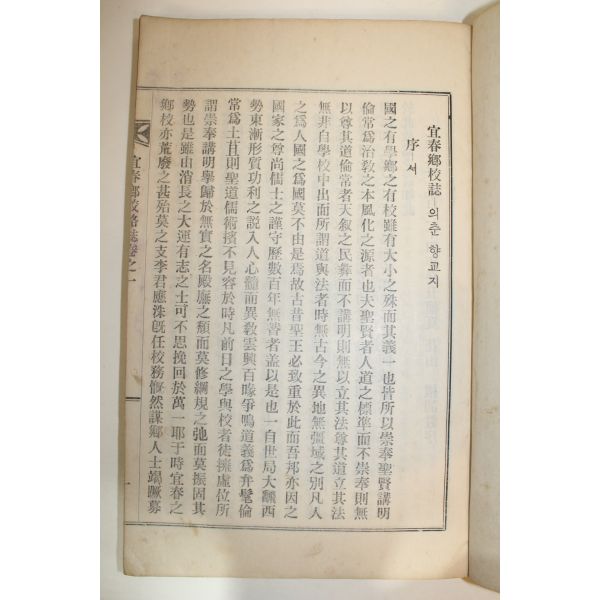 宜春鄕校誌 의춘향교지
序 서
國之有學鄕之有校雖有大小之殊而其義一也皆所以崇奉聖賢講明
倫常爲治敎之本風化之源者也夫聖賢者人道之標準而不崇奉則無
以尊其道倫常者天叙之民彝而不講明則無以立其法尊其道立其法
無非自學校中出而所謂道與法者時無古今之異地無彊域之別凡人
之爲人國之爲國莫不由是焉故古昔聖王必致重於此而吾邦亦因之
國家之尊尙儒士之謹守歷數百年無替者盖以是也一自世局大飜西
勢東漸形質功利之說入人心髓而異敎雲興百喙爭鳴道義爲弁髦倫
常爲土苴則聖道儒術擯不見容於時凡前日之學與校者徒擁虛位所
謂崇奉講明擧歸於無實之名殿廡之頹而莫修綱規之弛而莫振固其
勢也是雖由消長之大運有志之士可不思挽回於萬一耶于時宜春之
鄕校亦荒廢之甚殆莫之支李君應洙旣任校務慨然謀鄕人士竭蹶募
宜春鄕校誌卷之一
一